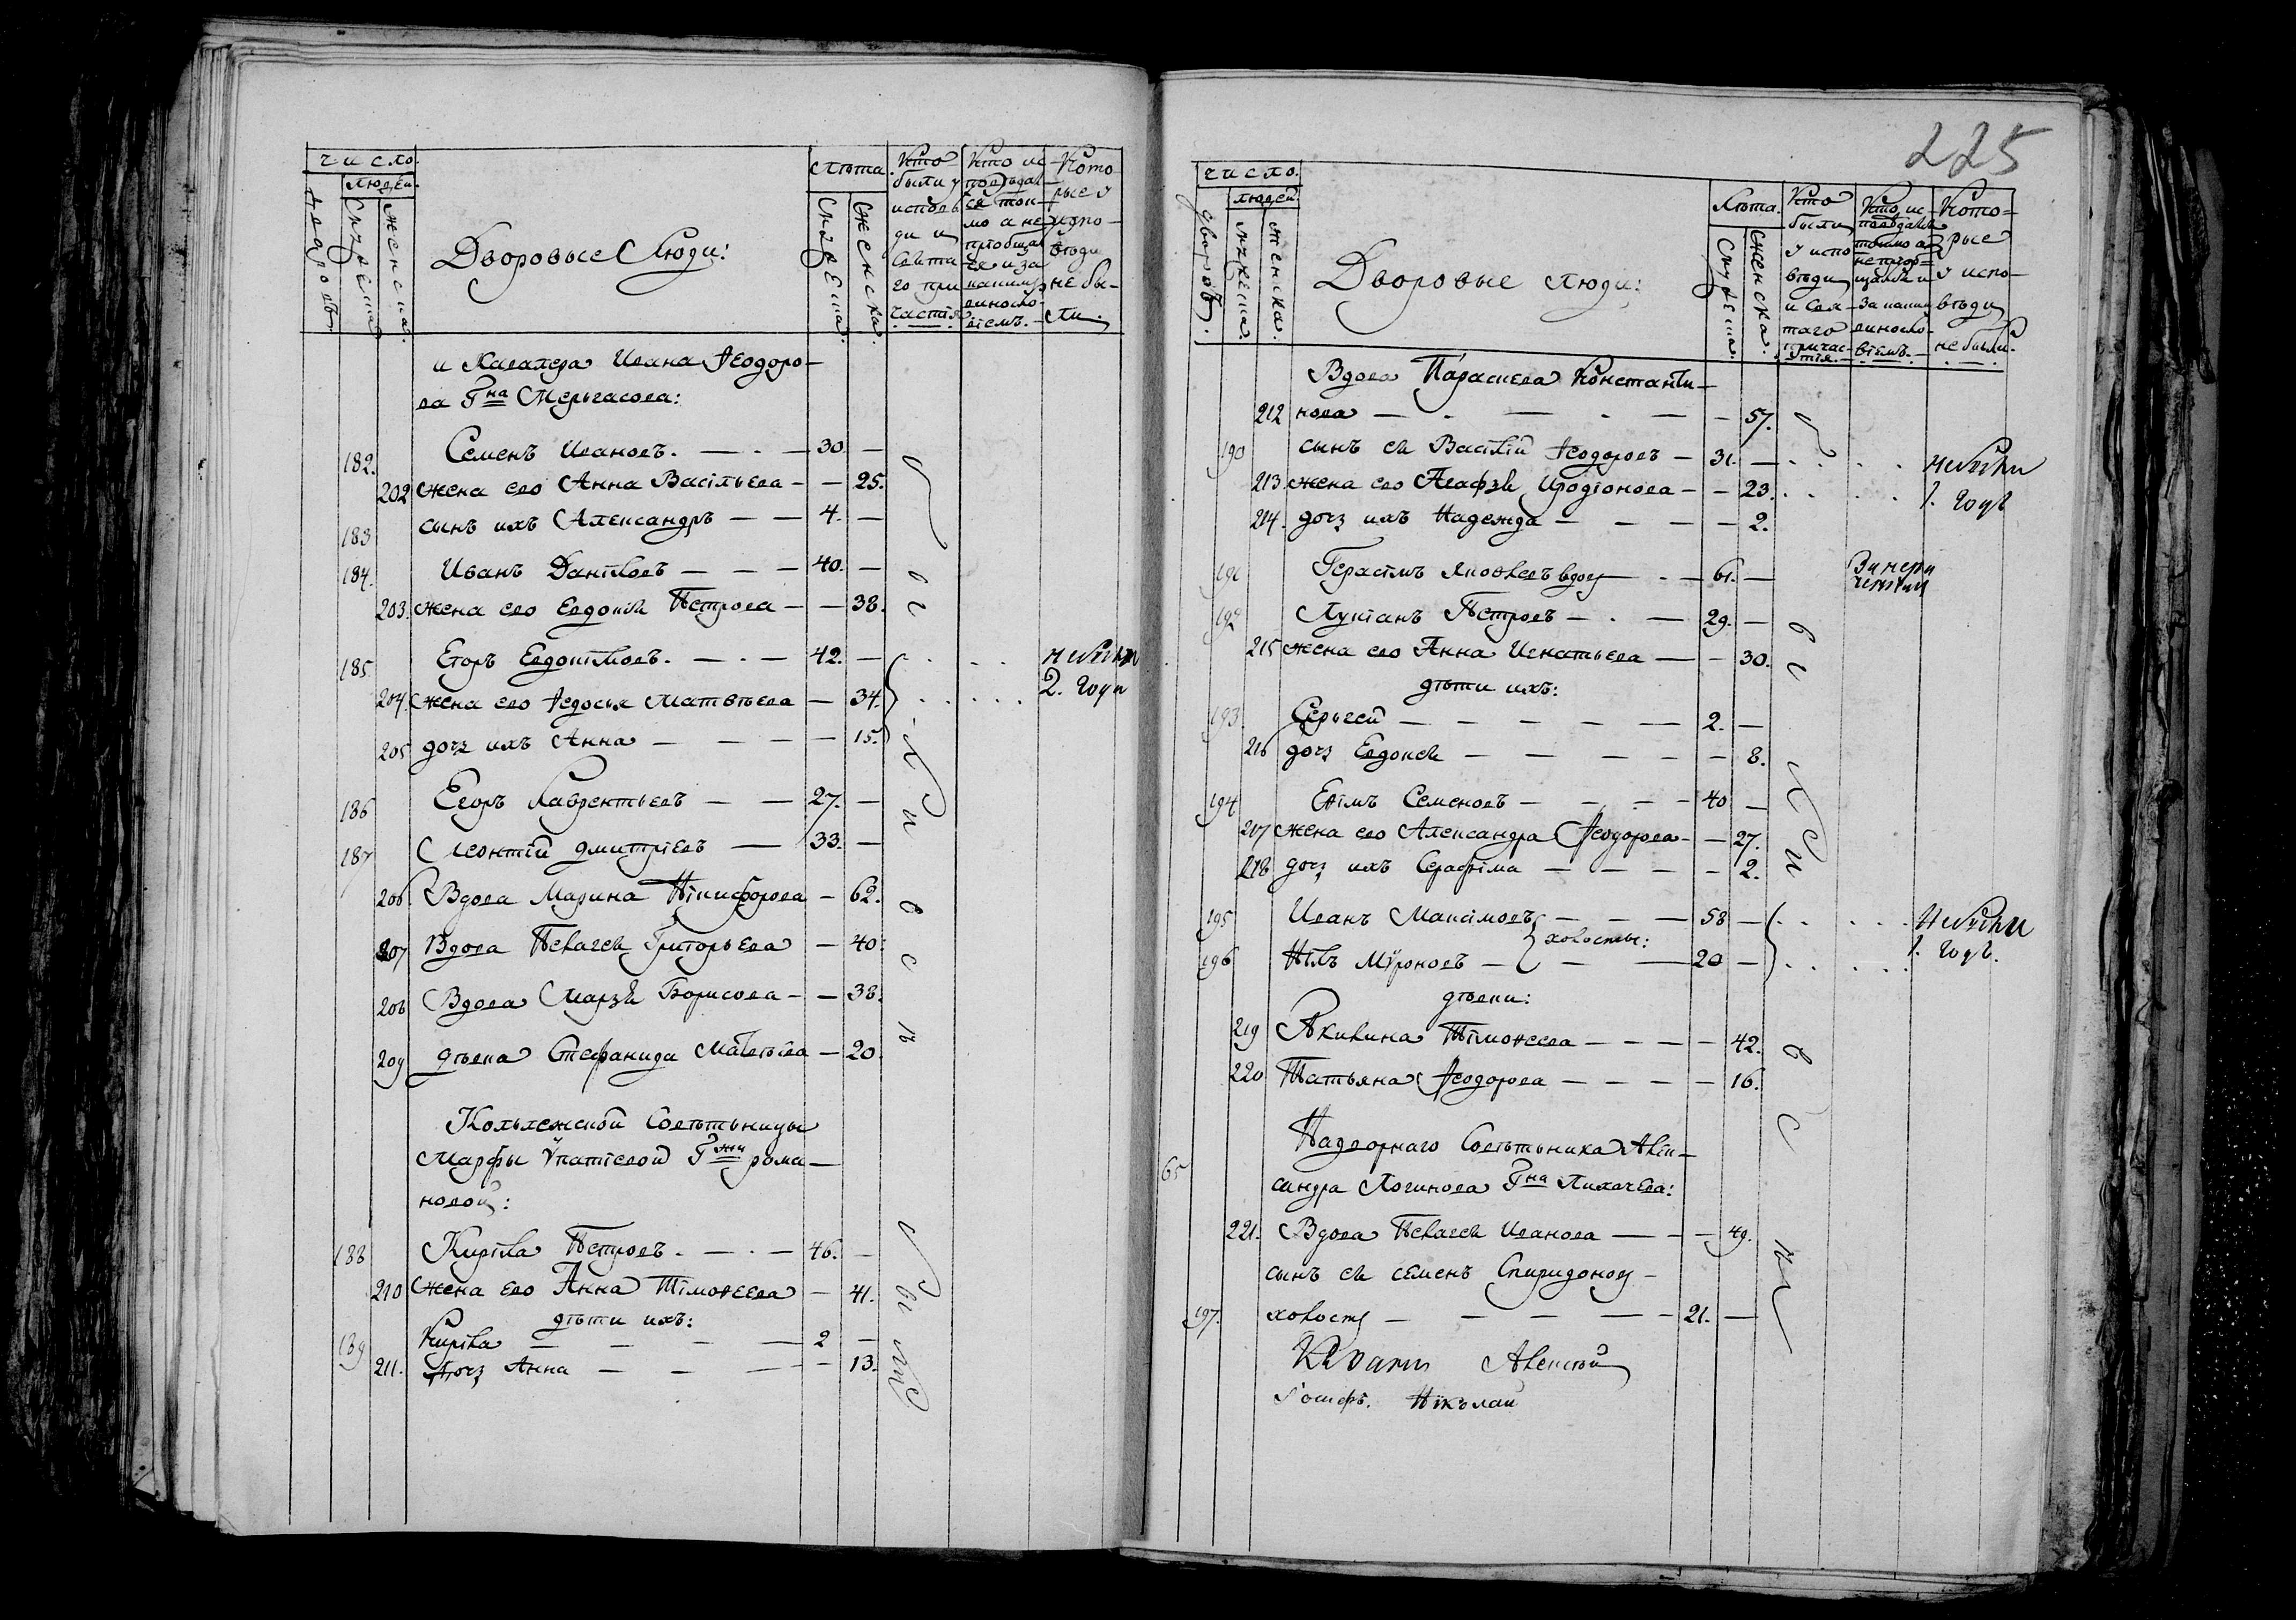 число.
людеи.
дваровъ
мужеска
женска.
Дворовые Люди:
лѣта.
мужеска.
женска.
Кто
были у
исповѣ
ди и
свята
го при
частія.
Кто ис
повѣдал
ся токмо а не
пріобщал
ся и за
каким
винословіемъ.
Кото
рые у
испо
вѣди
не бы-
ли.
и Кавалера Ивана Ѳеодоро-
ва Гна Мерьгасова:
182. Семенъ Ивановъ. — 30 —
202 жена ево Анна Васільева — — 25.
183 сынъ ихъ Александръ — — 4. —
184. Иванъ Даніловъ — — — 40. —
203. жена ево Евдокія Петрова — — 38.
185 Егоръ Евдокімовъ. — . — 42. — не были
204. жена ево Ѳедосья Матвѣева — 34. 2. года
205 дочь ихъ Анна — — — — 15.
186 Егоръ Лаврентьевъ — — 27. —
187 Леонтій Дмитріевъ — 33. —
206 Вдова Марина Нікифорова — 62.
207 Вдова Пелагея Григорьева — 40.
208 Вдова Марья Борисова — — 38.
209 дѣвка Стефанида Матвѣева — 20.
Кольлежской Совѣтьницы
Марфы Ѵпатіевой Гжи рома-
новой:
188 Кирила Петровъ. — . — 46. —
210 жена ево Анна Тімоѳеева — 41.
дѣти ихъ:
189 Кирила — — — 2 —
211. дочь Анна — — — — 13.
225
число.
людей.
дворовъ.
мужеска.
женска.
Дворовые люди:
лѣта.
мужеска.
женска.
Кто
были
у испо
вѣди
и свя-
таго
причас-
тія.
Кто ис-
повѣдался
токмо а
не пріоб-
щался и
за каким
винosло-
віемъ.
Кото-
рые
у испо-
вѣди
не были.
Вдова Параскева Константи-
212 нова — — — — 57.
190 сынъ ея Василій Ѳеодоровъ — 31. — не были
213. жена ево Агафья Иродіонова — — 23. 1. годъ
214. дочь ихъ Надежда — — — — 2.
191 Герасімъ Яковлевъ вдов — 61. —
192 Лукіанъ Петровъ — . — 29. —
215 жена ево Анна Игнатьева — — 30.
дѣти ихъ:
193 Серьгей — — — — — 2. —
216 дочь Евдокея — — — — — 8.
194 Ефімъ Семеновъ — — — 40 —
217 жена ево Александра Ѳеодорова — — 27.
218 дочь ихъ Серафіма — — — — 2.
195 Иванъ Максімовъ — — — 58 — не были
холосты: 1. годъ.
196 Нілъ Міроновъ — — — 20 —
дѣвки:
219 Акилина Тімоѳеева — — — — 42.
220 Татьяна Ѳеодорова — — — — 16.
65 Надворнаго Совѣтьника Алек-
сандра Логинова Гна Лихачева:
221. Вдова Пелагея Иванова — — — 49.
сынъ ея семенъ Спиридонов —
197. холостъ — — — — — 21. —
Алексѣй
Іосифъ. Ніколай